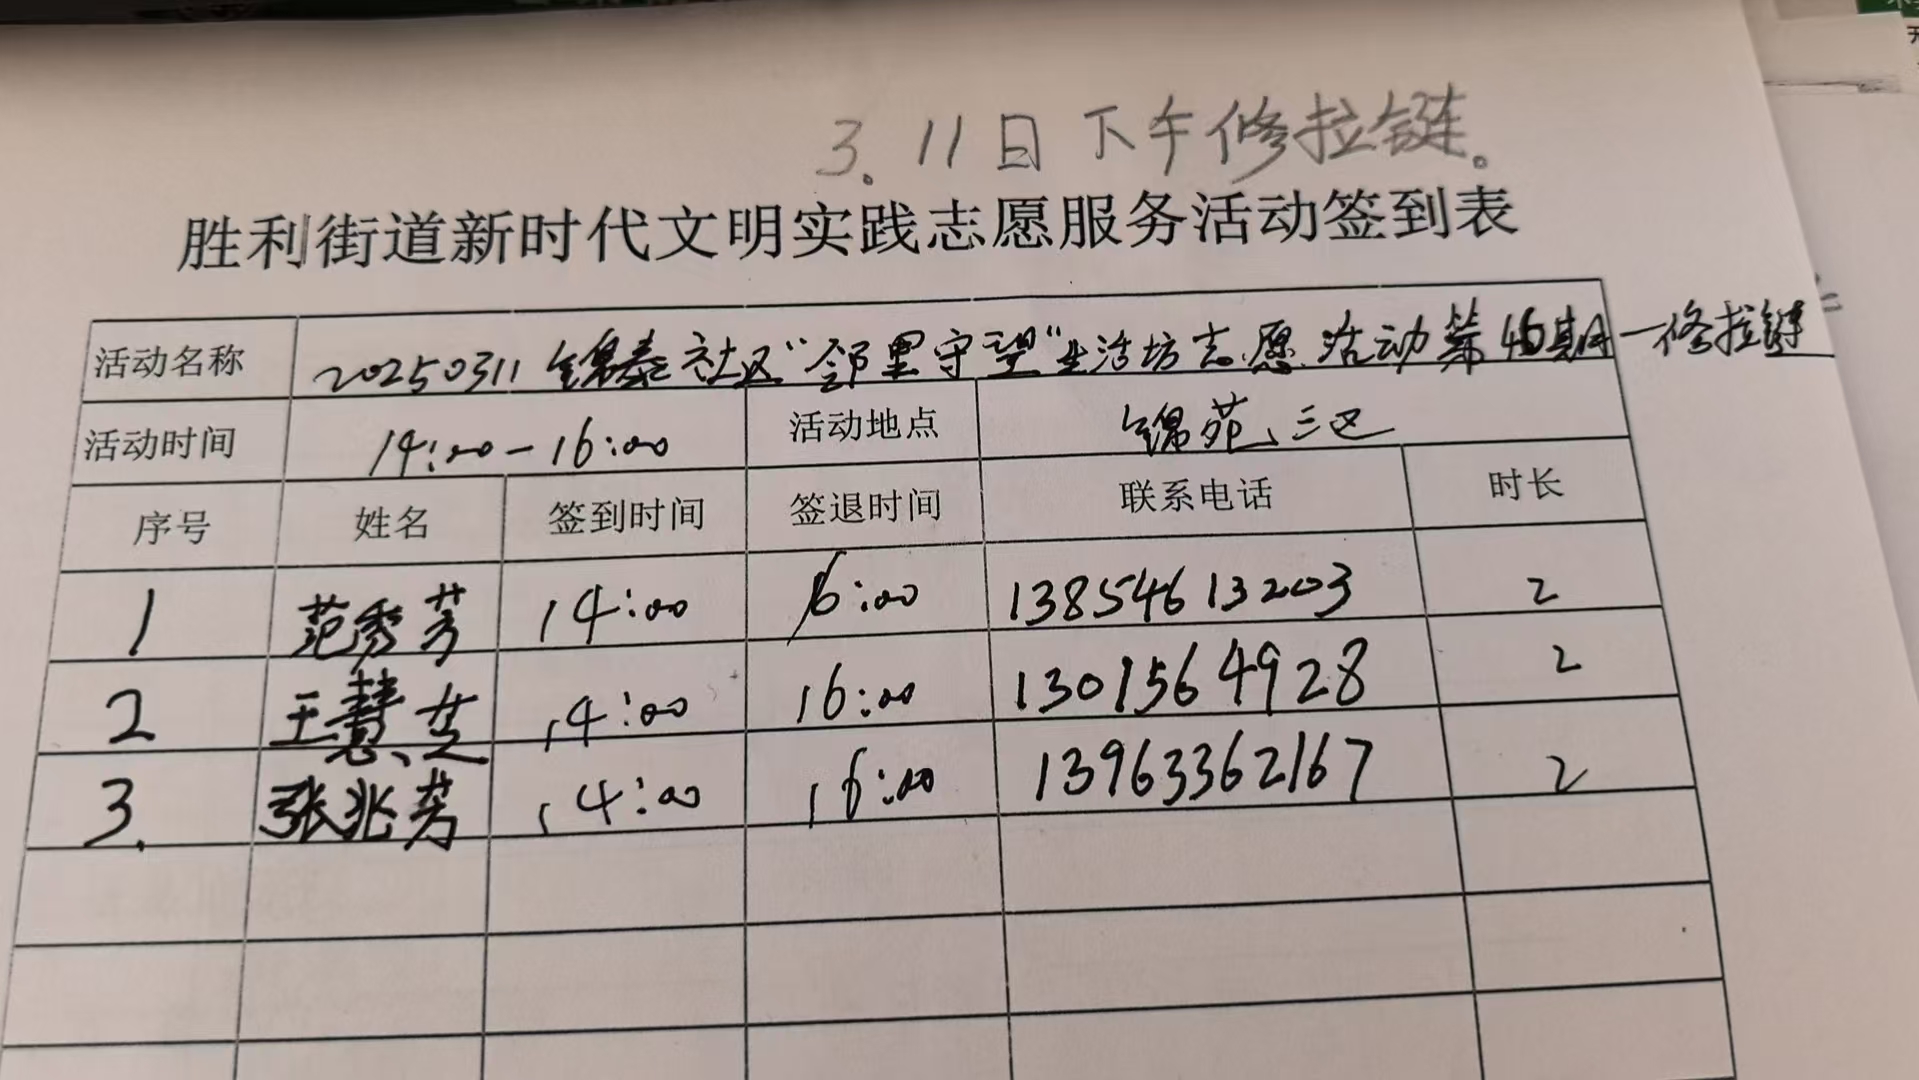 3.11日下午修拉链。
胜利街道新时代文明实践志愿服务活动签到表
活动名称 20250311锦泰社区“邻里守望”生活坊志愿活动第 期—修拉链
活动时间 14:00-16:00 活动地点 锦苑三区
序号 姓名 签到时间 签退时间 联系电话 时长
1 范秀芳 14:00 16:00 13854613203 2
2 王慧芝 14:00 16:00 1301564928 2
3. 张兆芳 14:00 16:00 13963362167 2